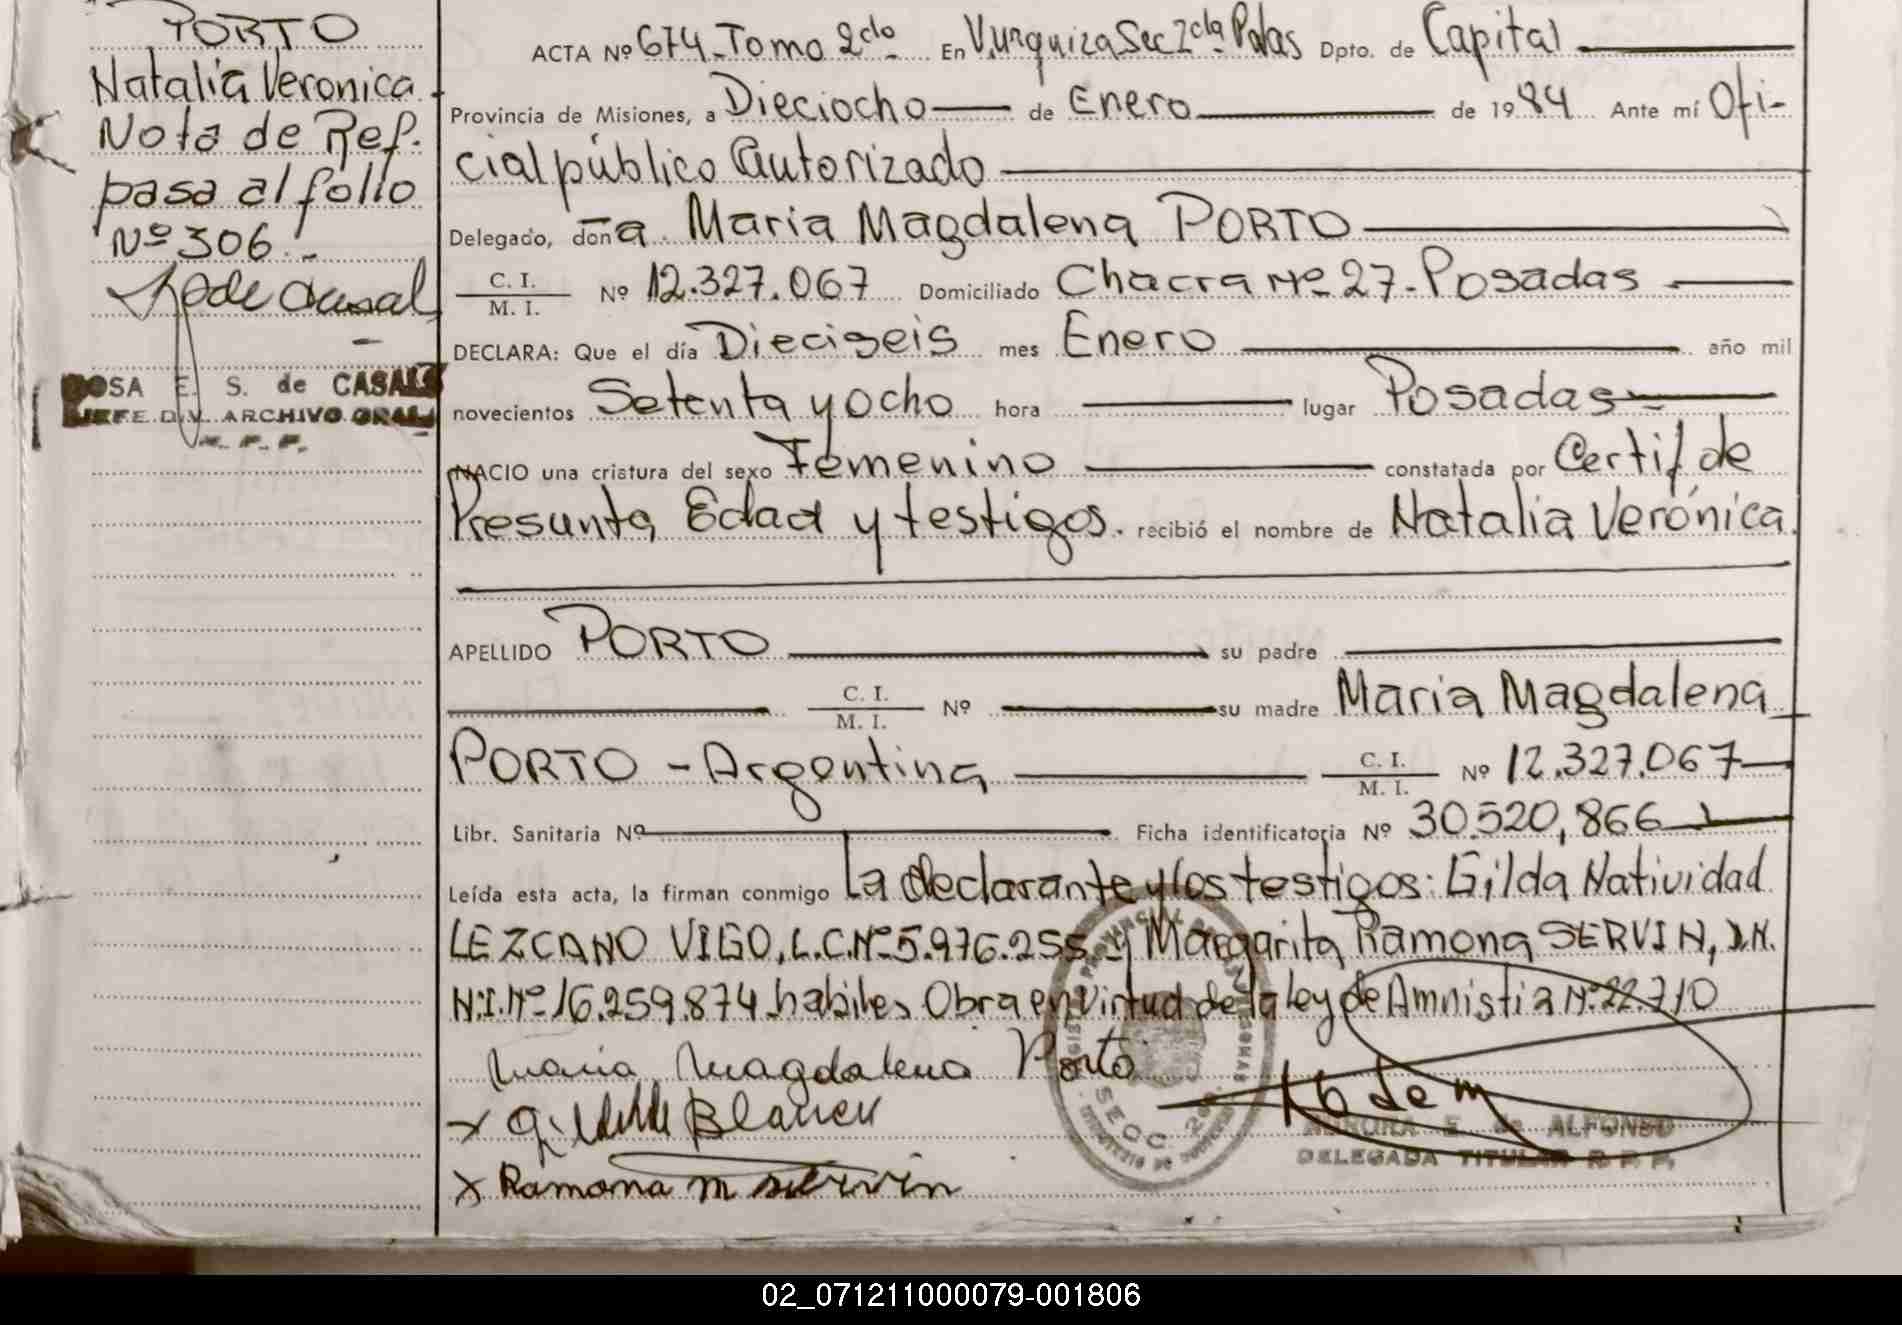 PORTO
Natalia Veronica
Nota de Ref.
pasa al folio
Nº 306
ROSA E. S. de CASALS
JEFE DIV. ARCHIVO GRAL.
R. P. P.
ACTA Nº 674 - Tomo 2do En V. Urquiza Sec 2da Pdas Dpto. de Capital
Provincia de Misiones, a Dieciocho de Enero de 1984 Ante mí Ofi-
cial público Autorizado
Delegado, doña Maria Magdalena PORTO
C. I.
M. I. Nº 12.327.067 Domiciliado Chacra Nº 27 - Posadas
DECLARA: Que el día Dieciseis mes Enero año mil
novecientos Setenta y ocho hora lugar Posadas
NACIO una criatura del sexo Femenino constatada por Certif de
Presunta Edad y testigos. recibió el nombre de Natalia Verónica.
APELLIDO PORTO su padre
C. I.
M. I. Nº su madre Maria Magdalena
PORTO - Argentina C. I.
M. I. Nº 12.327.067
Libr. Sanitaria Nº Ficha identificatoria Nº 30.520,866
Leída esta acta, la firman conmigo La declarante y los testigos: Gilda Natividad
LEZCANO VIGO, L.C. Nº 5.976.255 y Margarita Ramona SERVIN, D.N.
N.I. Nº 16.259.874 habiles Obra en virtud de la ley de Amnistia Nº 22.710
Maria Magdalena Porto
x Ramona M Servin
AURORA E. de ALFONSO
DELEGADA TITULAR R. P. P.
02_071211000079-001806